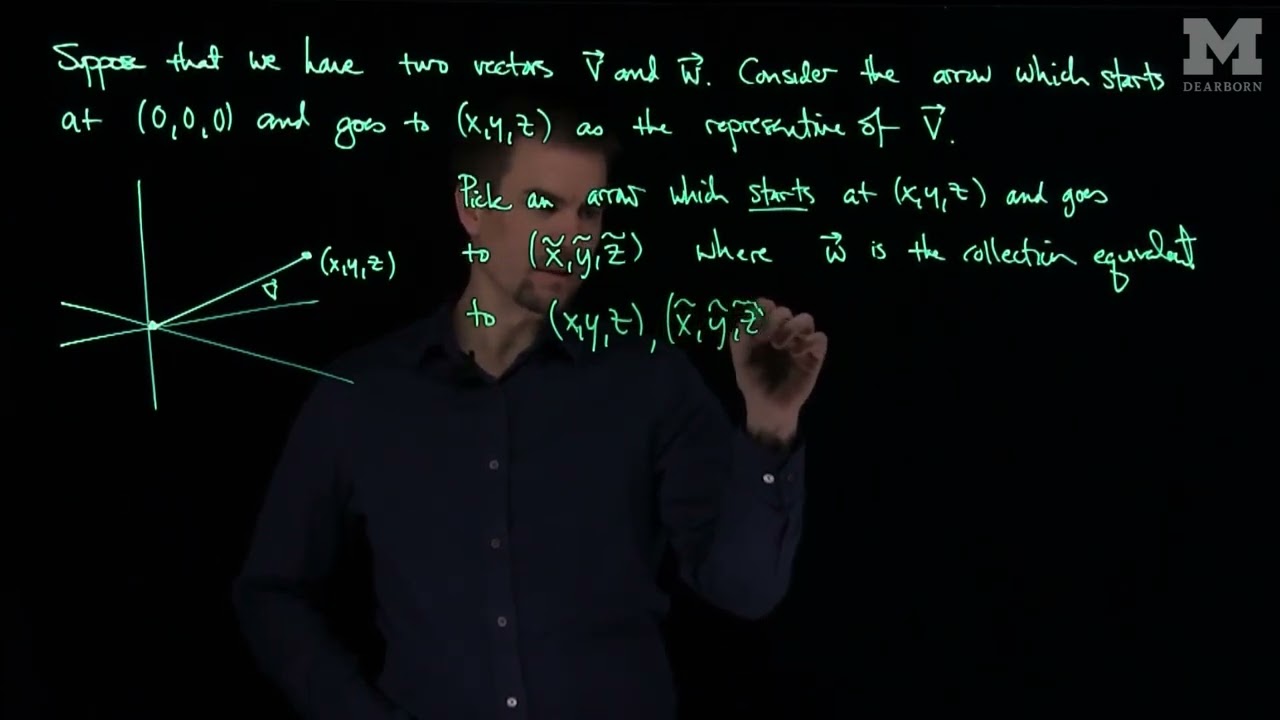 Suppose that we have two vectors v⃗ and w⃗. Consider the arrow which starts
at (0,0,0) and goes to (x,y,z) as the representive of v⃗.
Pick an arrow which starts at (x,y,z) and goes
to (x̃,ỹ,z̃) where w⃗ is the collection equivalent
to (x,y,z), (x̃,ỹ,z̃)
(x,y,z)
v⃗
M
DEARBORN